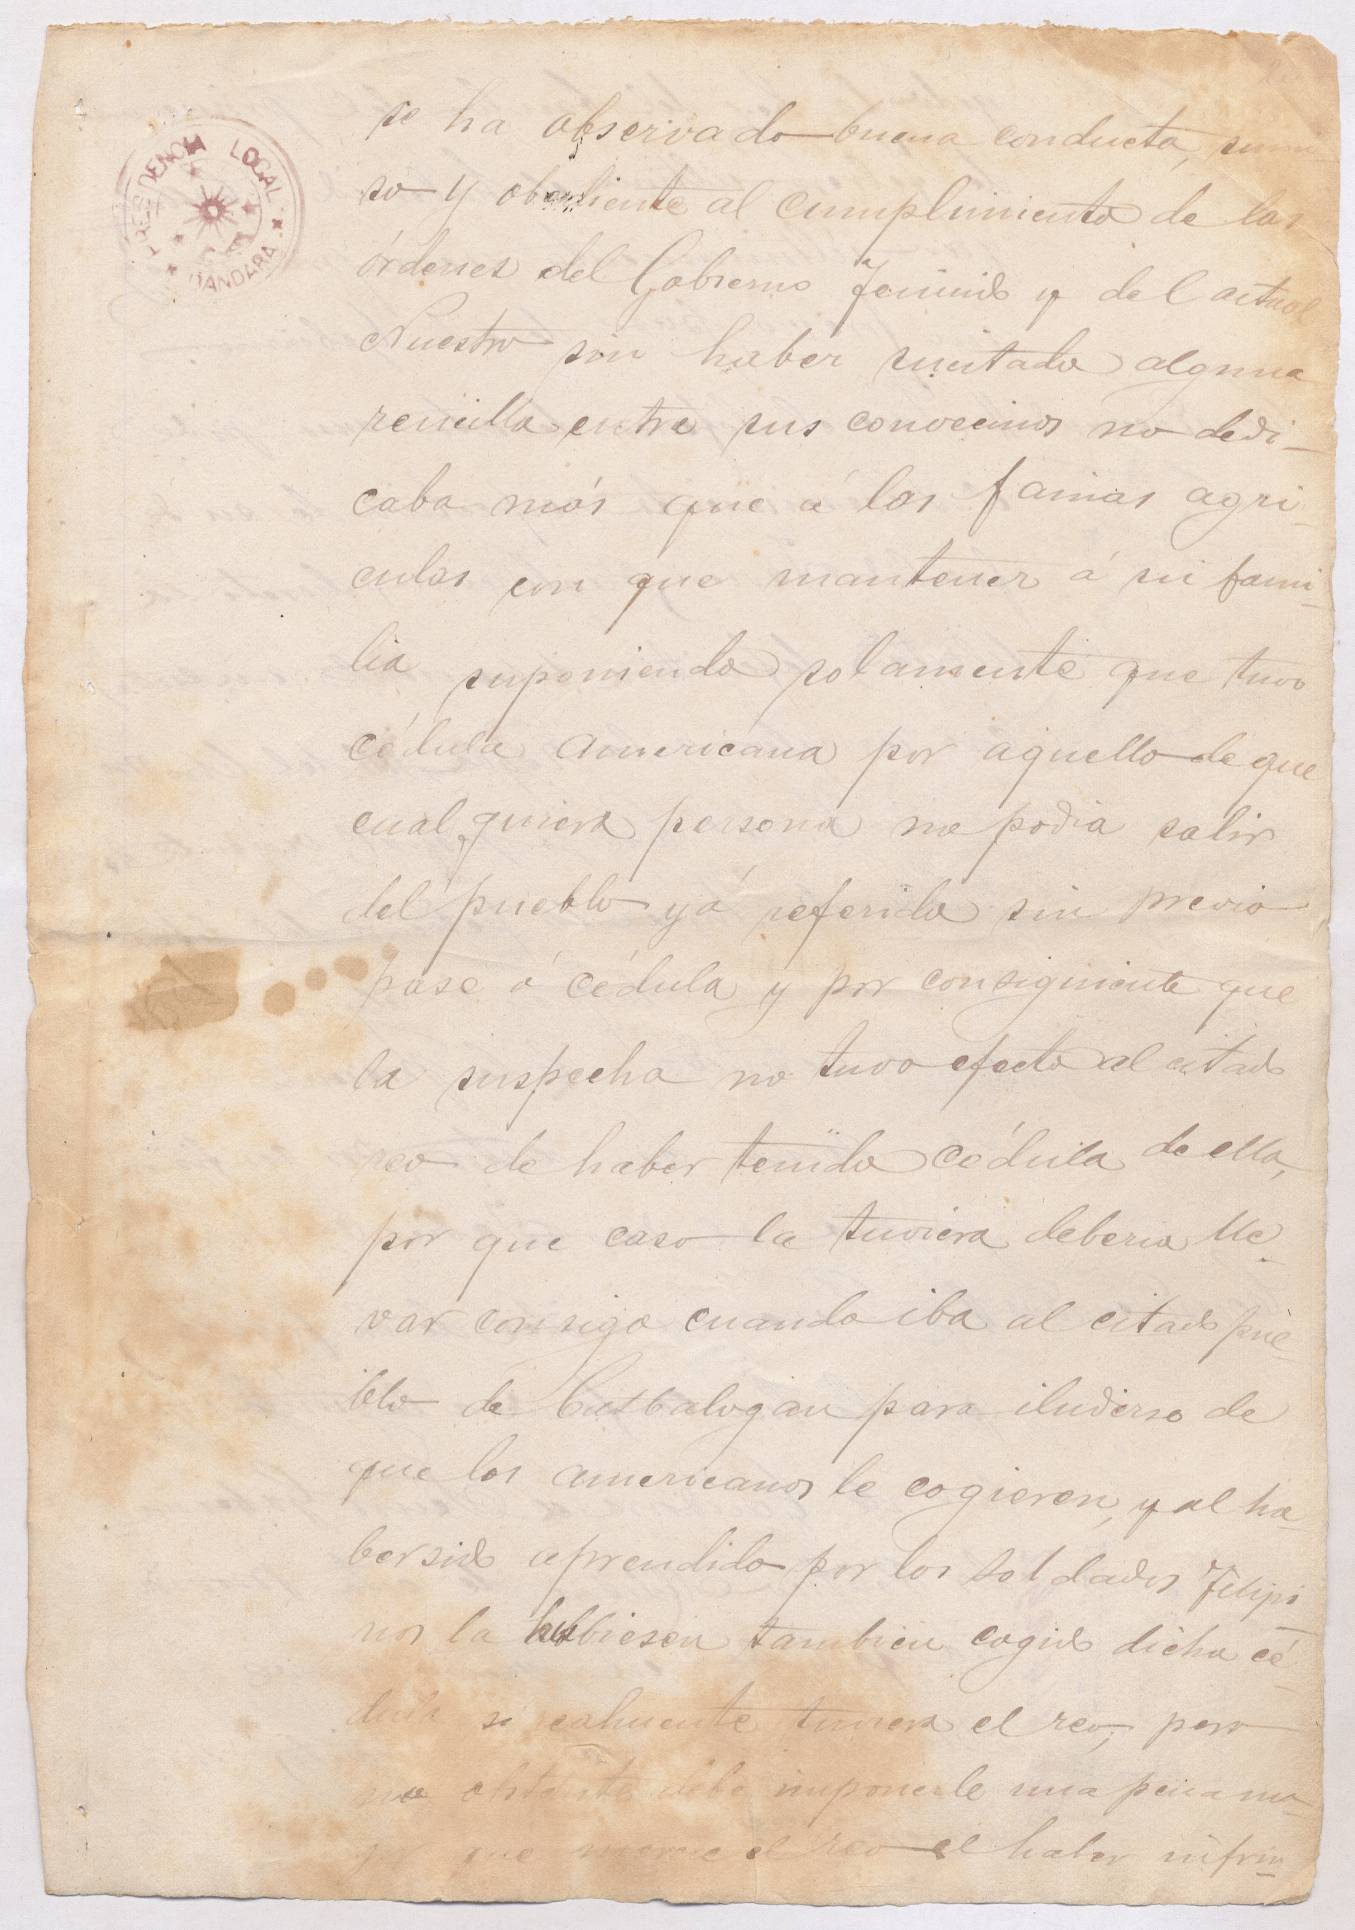 PRESIDENCIA LOCAL
GANDARA
se ha observado buena conducta, sumi
so y obediente al cumplimiento de las
órdenes del Gobierno y del actual
Nuestro sin haber sucitado alguna
rencilla entre sus convecinos no dedi-
caba más que á las fainas agri-
culas con que mantener á su fami-
lia suponiendo solamente que tuvo
cédula americana por aquello de que
cualquiera persona no podia salir
del pueblo yá referido sin previo
pase ó cédula y por consiguiente que
la suspecha no tuvo efecto al citado
reo de haber tenido cédula de ella,
por que caso la tuviera deberia lle-
var consigo cuando iba al citado pue-
blo de Catbalogan para iludirse de
que los americanos le cogieren, y al ha-
ber sido aprendido por los soldados Filipi
nos la hubiesen tambien cogido dicha cé-
dula si realmente tuviera el reo, pero
no obstante debe imponerle una pena ma-
yor que merece el reo el haber infrin-